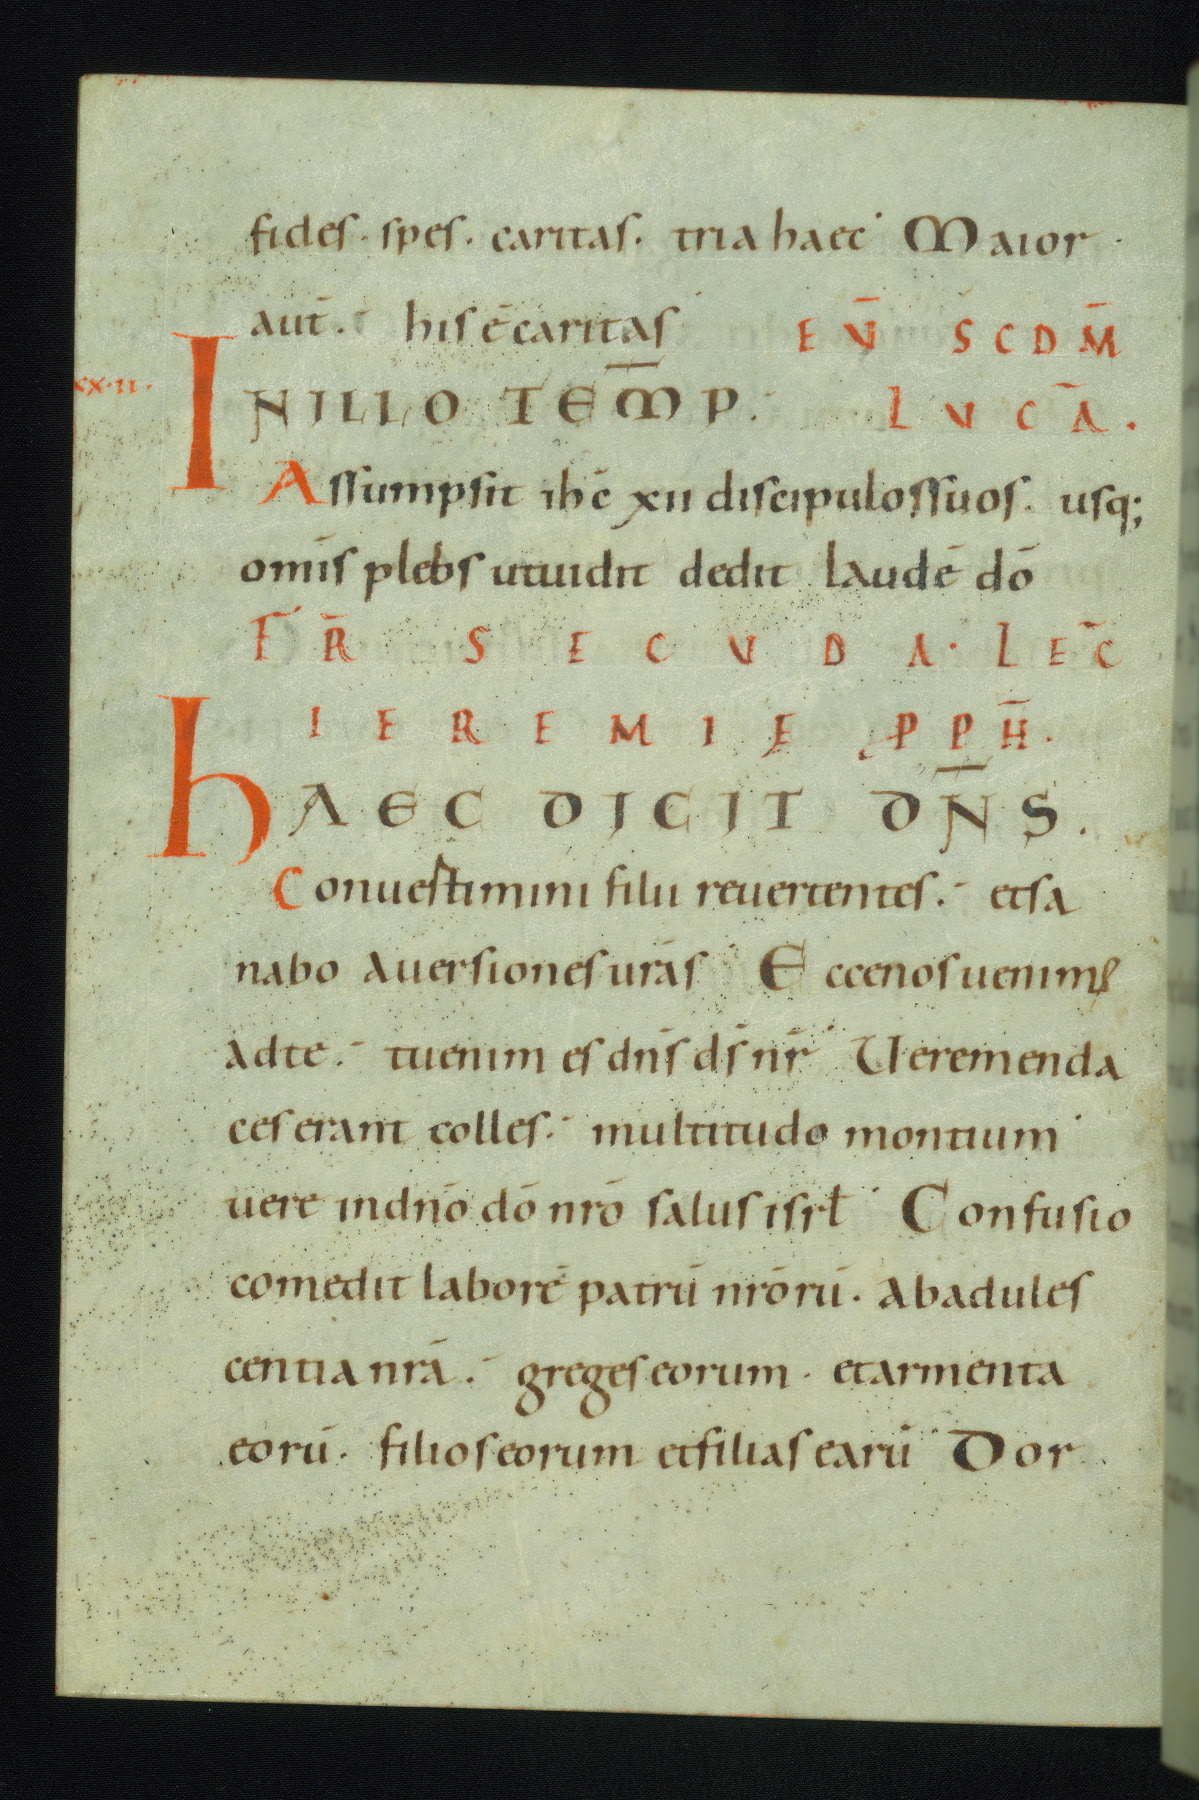 fides · spes · caritas · tria haec · Maior
aut̄ · his ē caritas EV̄ SCDM̄
XX·II·
IN ILLO TEM̄P · LVCĀ ·
Assumpsit ihc̄ xii discipulos suos · usq;
omīs plebs ut uidit dedit laudē dō
FR̄ SECVDA · LEC̄
IEREMIE PPH̄ ·
hAEC DICIT DN̄S ·
Conuestimini filii reuertentes · et sa
nabo auersiones urās · Ecce nos uenimꝰ
ad te · tu enim es dn̄s ds̄ nr̄ · Uere menda
ces erant colles · multitudo montium
uere in dn̄o dō nrō salus isrł · Confusio
comedit laborē patrū nrōrū · ab adules
centia nrā · greges eorum · et armenta
eorū · filios eorum et filias earū · Dor